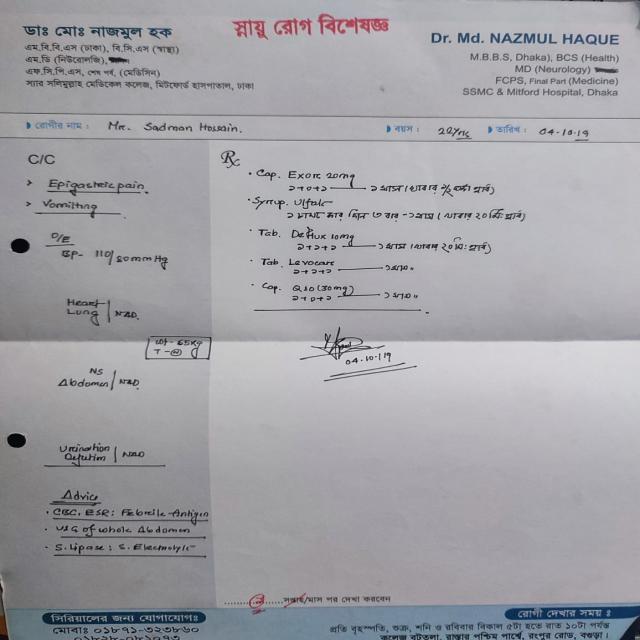 স্নায়ু রোগ বিশেষজ্ঞ
ডাঃ মোঃ নাজমুল হক
এম.বি.বি.এস (ঢাকা), বি.সি.এস (স্বাস্থ্য)
এম.ডি (নিউরোলজি),
এফ.সি.পি.এস, শেষ পর্ব, (মেডিসিন)
স্যার সলিমুল্লাহ মেডিকেল কলেজ, মিটফোর্ড হাসপাতাল, ঢাকা
Dr. Md. NAZMUL HAQUE
M.B.B.S, Dhaka), BCS (Health)
MD (Neurology)
FCPS, Final Part (Medicine)
SSMC & Mitford Hospital, Dhaka
রোগীর নাম : Mr. Sadman Hossain. বয়স : 22 Yrs তারিখ : 04-10-19
C/C
> Epigastric pain.
> Vomitting
O/E
BP- 110/80mmHg
Heart
Lung | NAD.
Wt- 65kg
T-
NS
Abdomen | NAD.
Urination
| NAD
Advice
· CBC, ESR: Febrile-Antigen
· USG of whole Abdomen
· S. Lipase: S. Electrolyte
Rx
· Cap. Exorc 20mg
১+০+১ ১মাস
· Syrup. Ulfalc
· Tab. Deflux 10mg
১+১+১ ১মাস
· Tab. Levocare
১+১+১
· Cap. (30mg)
১+০+১
04.10.19
সপ্তাহ/মাস পর দেখা করবেন
সিরিয়ালের জন্য যোগাযোগঃ
মোবাঃ ০১৮৭১-৩২৩৮৬০
রোগী দেখার সময় ঃ
প্রতি বৃহস্পতি, শুক্র, শনি ও রবিবার বিকাল ৫টা হতে রাত ১০টা পর্যন্ত
কলেজ বটতলা, রাস্তার পশ্চিম পার্শ্বে, রংপুর রোড, বগুড়া।